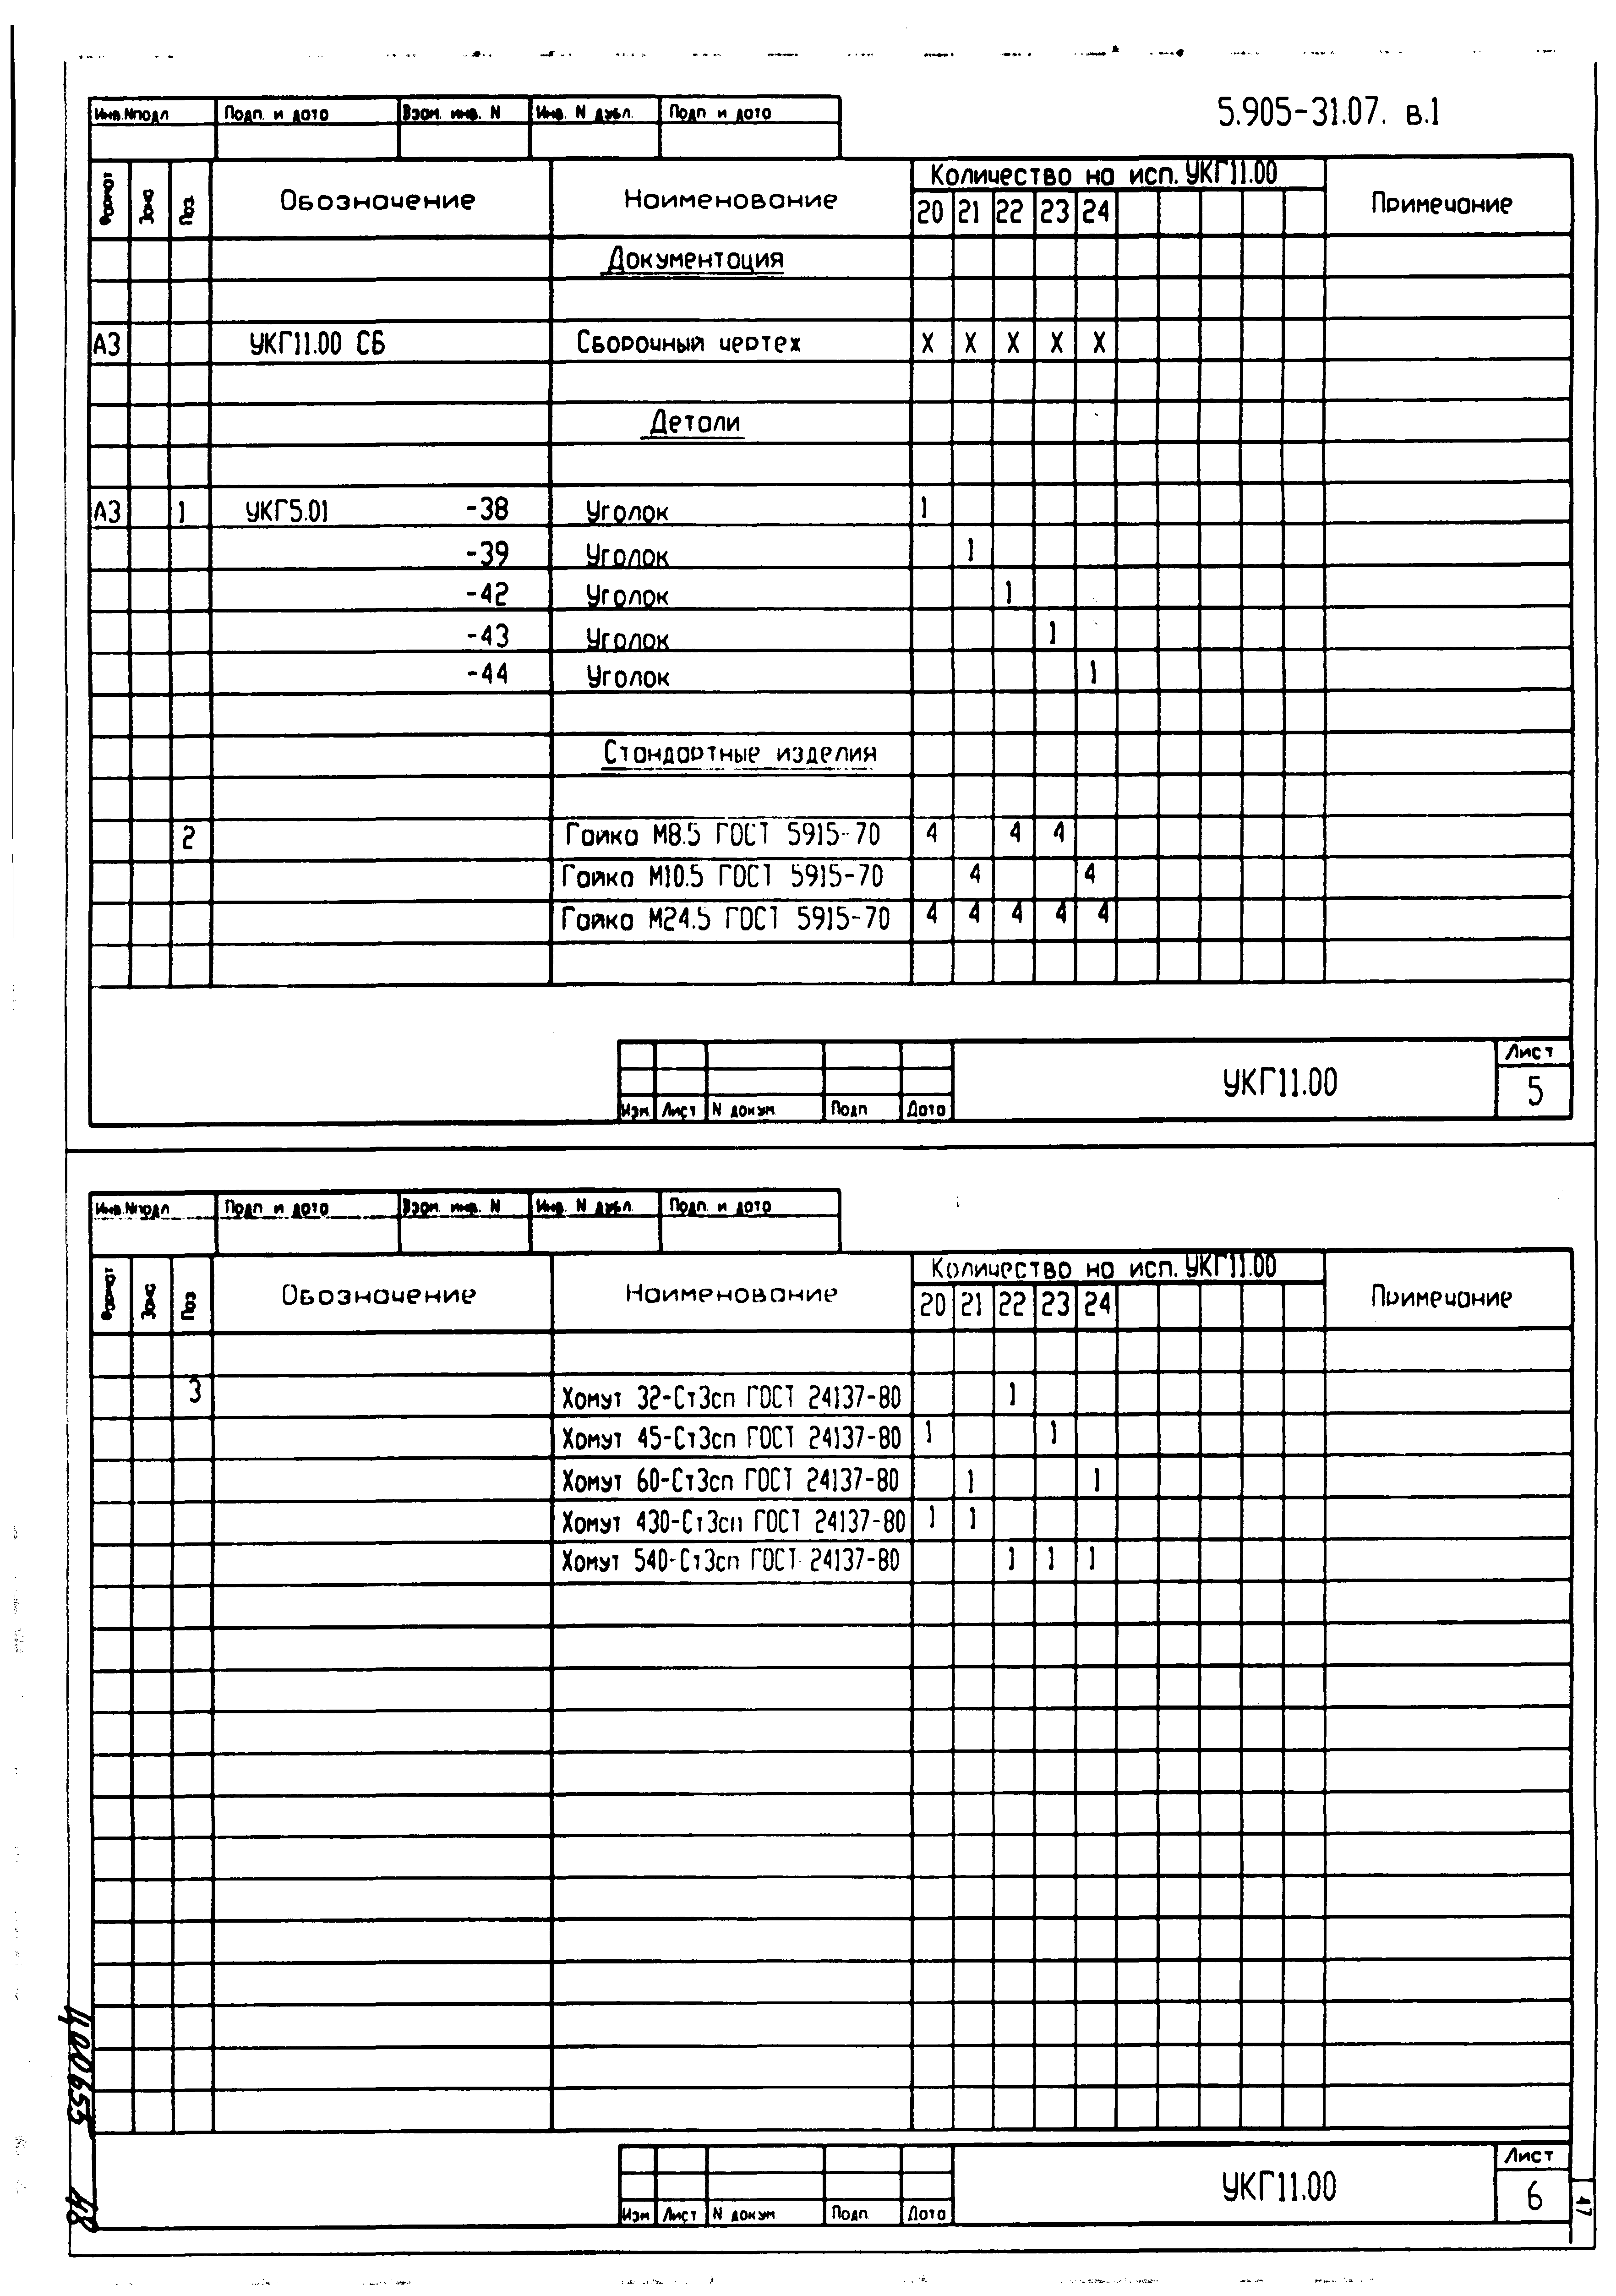 5.905-31.07. в.1
Инв.Nподл Подп. и дата Взам. инв. N Инв. N дубл. Подп и дата
Формат Зона Поз. Обозначение Наименование Количество на исп. УКГ11.00 Примечание
20 21 22 23 24
Документация
А3 УКГ11.00 СБ Сборочный чертех X X X X X
Детали
А3 1 УКГ5.01 -38 Уголок 1
-39 Уголок 1
-42 Уголок 1
-43 Уголок 1
-44 Уголок 1
Стандартные изделия
2 Гайка М8.5 ГОСТ 5915-70 4 4 4
Гайка М10.5 ГОСТ 5915-70 4 4
Гайка М24.5 ГОСТ 5915-70 4 4 4 4 4
УКГ11.00 Лист
5
Изм Лист N докум Подп Дата
Инв.Nподл Подп. и дата Взам. инв. N Инв. N дубл. Подп. и дата
Формат Зона Поз Обозначение Наименование Количество на исп. УКГ11.00 Примечание
20 21 22 23 24
3 Хомут 32-Ст3сп ГОСТ 24137-80 1
Хомут 45-Ст3сп ГОСТ 24137-80 1 1
Хомут 60-Ст3сп ГОСТ 24137-80 1 1
Хомут 430-Ст3сп ГОСТ 24137-80 1 1
Хомут 540-Ст3сп ГОСТ 24137-80 1 1 1
УКГ11.00 Лист
6
Изм Лист N докум Подп Дата
Ц00655 48
47